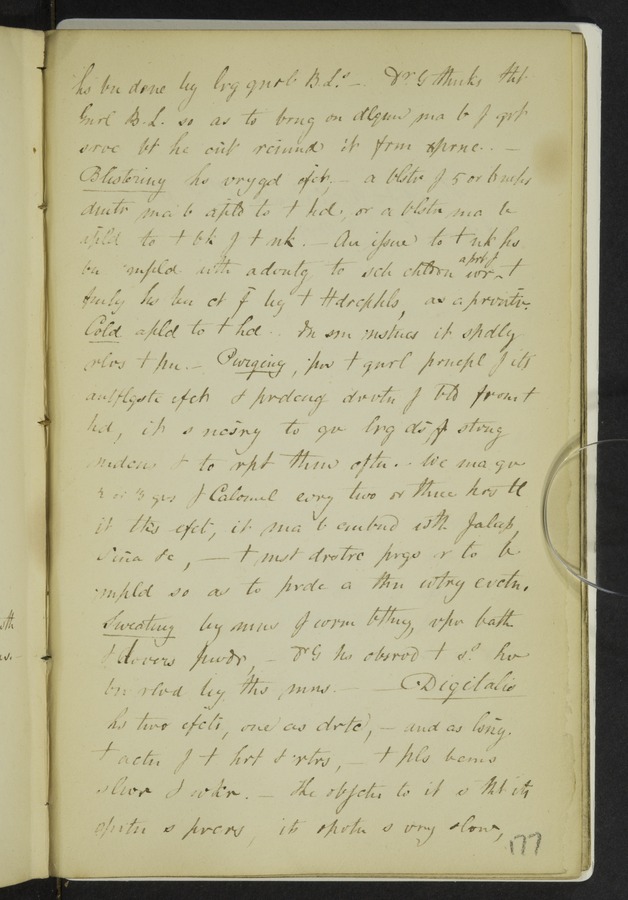 hs bn done by lrg gnrl B.L.s — Dr G thinks tht
Gnrl B.L. so as to brng on dlqum ma b f grt
srvc bt he cnt rcmnd it frm xprnc. —
Blistering hs vry gd efct, — a blstr f 5 or 6 nchs
dmtr ma b apld to t hd, or a blstr ma b
apld to t bk f t nk. — An issue to t nk hs
bn mpld with advntg to sch chldrn aprt f wr t
fmly hs bn ct f by t Hdrcphls, as a prvntv.
Cold apld to t hd. In sm nstncs it spdly
rlvs t pn. — Purging, pn t gnrl prncpl f its
antflgstc efct & prdcng drvtn f bld from t
hd, it s ncsry to gv lrg ds f strng
mdcns & to rpt thm oftn. We ma gv
2 or 3 grs f Calomel evry two or three hrs tl
it tks efct, it ma b cmbnd with Jalap,
Sena &c, — t mst drstc prgs r to b
mpld so as to prdc a thn wtry evctn.
Sweating by mns f worm bthng, vpr bath
& dovers pwdr, — Dr G hs obsrvd t s. hv
bn rlvd by ths mns. — Digitalis
hs two efcts, one as drtc, — and as lsng
t actn f t hrt & rtrs, — t pls bcms
slwr & wkr. — The objctn to it s tht its
oprtn s prcrs, its oprtn s vry slow,
177